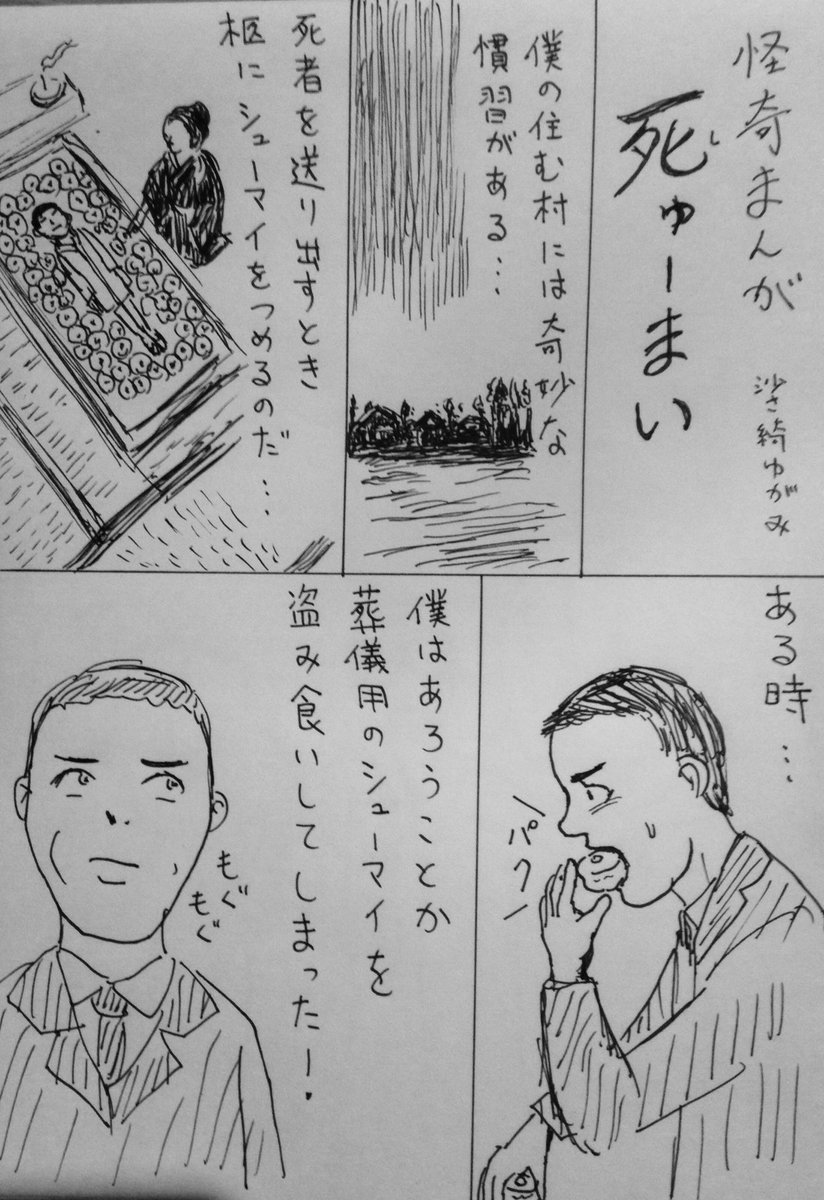 怪奇まんが
死ゅーまい
し
沙綺ゆがみ
僕の住む村には奇妙な
慣習がある…
死者を送り出すとき
柩にシューマイをつめるのだ…
ある時…
パクッ
僕はあろうことか
葬儀用のシューマイを
盗み食いしてしまったー．
もぐ
もぐ